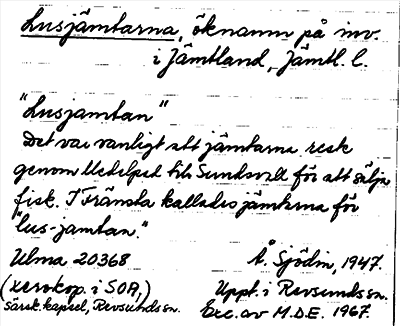 Lusjämtarna, öknamn på inv.
i Jämtland, Jämtl. l.
"Lusjamtan"
Det var vanligt att jämtarna resk
genom Medelpad till Sundsvall för att sälja
fisk. I Fränsta kallades jämtarna för
"lus-jamtan."
Ulma 20368
Å. Sjödin, 1947.
(xerokop. i SOA,)
Uppt. i Revsunds sn.
särsk. kapsel, Revsunds sn.
Exc. av M.D.E. 1967.